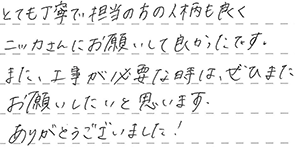 とても丁寧で担当の方の人柄も良く
ニッカさんにお願いして良かったです。
また、工事が必要な時は、ぜひまた
お願いしたいと思います。
ありがとうございました!